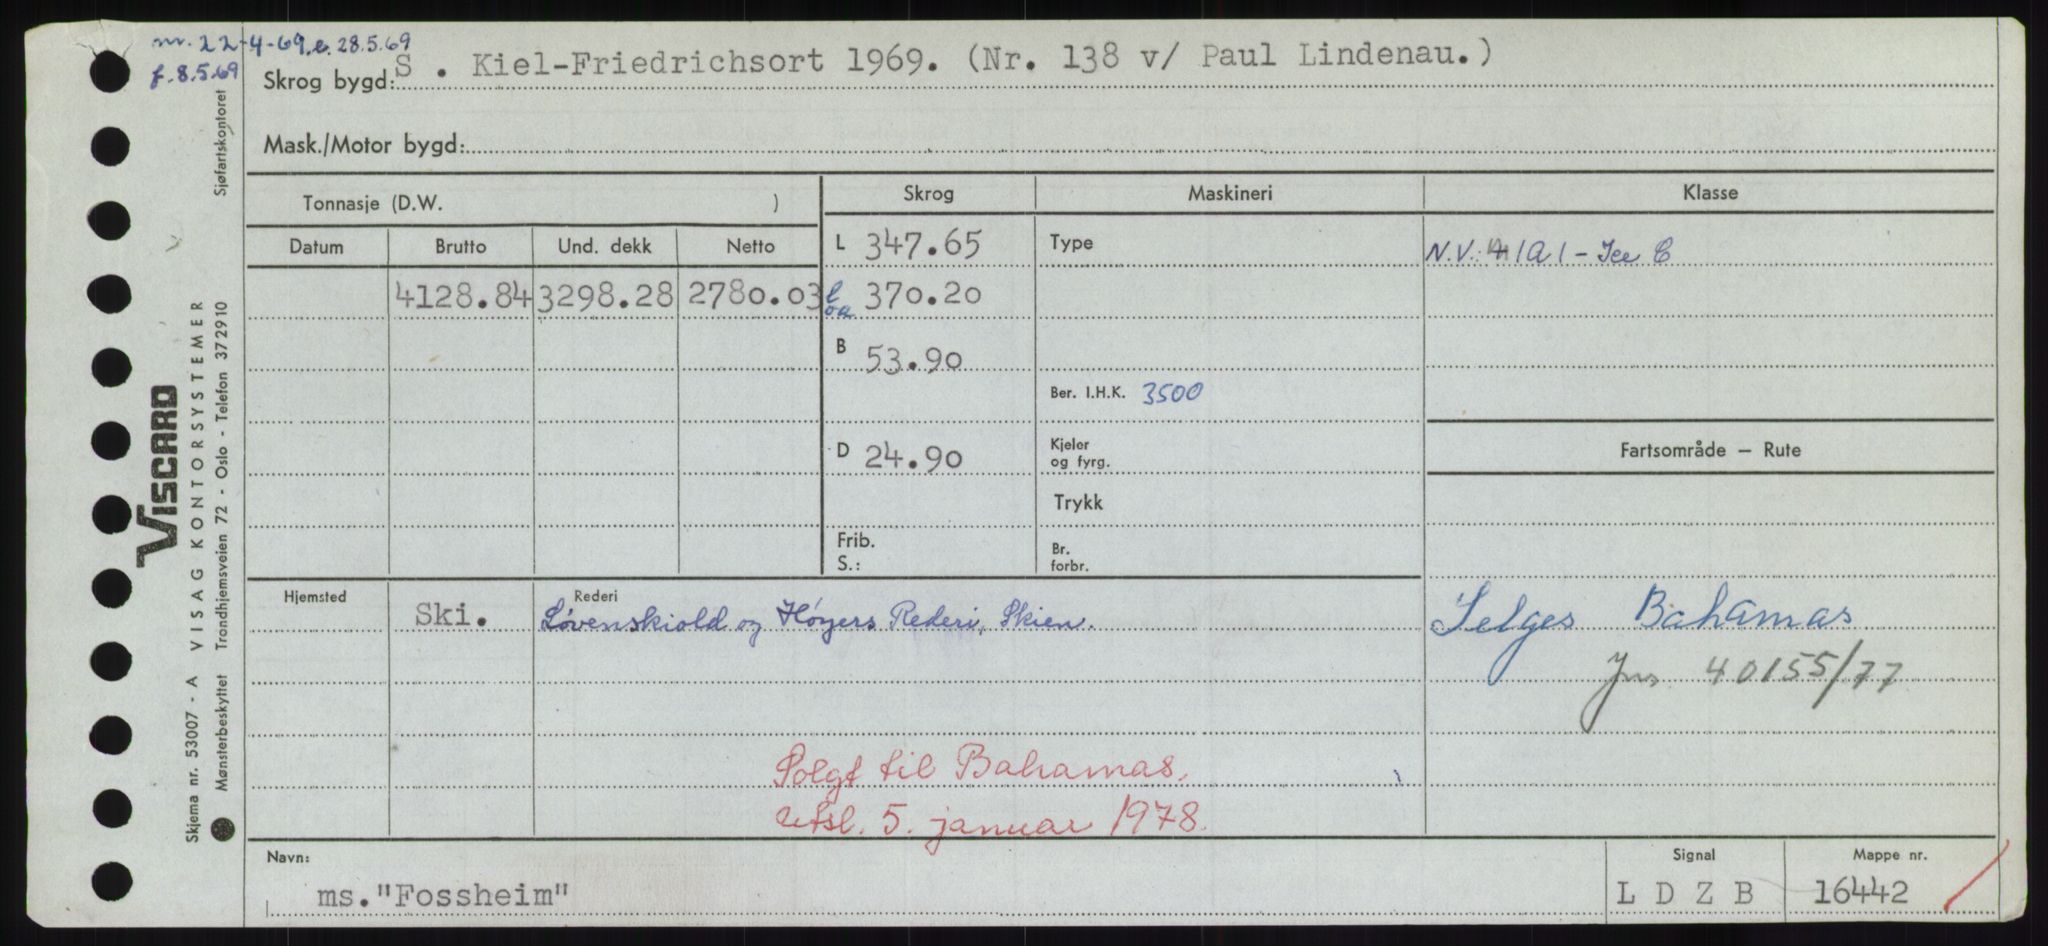 m. 22-4-69. e. 28.5.69
f. 8.5.69
Skrog bygd: S . Kiel-Friedrichsort 1969. (Nr. 138 v/ Paul Lindenau.)
Mask./Motor bygd:
Tonnasje (D.W. )
Skrog
Maskineri
Klasse
Datum
Brutto
Und. dekk
Netto
L 347.65
Type
N.V.: 1A1 - Ice C
4128.84
3298.28
2780.03
l oa 370.20
B 53.90
Ber. I.H.K. 3500
D 24.90
Kjeler
og fyrg.
Fartsområde — Rute
Trykk
Frib.
S.:
Br.
forbr.
Hjemsted
Ski.
Rederi
Løvenskiold og Høyers Rederi, Skien.
Selges Bahamas
Jnr. 40155/77
Solgt til Bahamas.
utsl. 5. januar 1978.
Navn:
ms."Fossheim"
Signal
L D Z B
Mappe nr.
16442
VISCARD
Skjema nr. 53007 - A VISAG KONTORSYSTEMER
Mønsterbeskyttet Trondhjemsveien 72 - Oslo - Telefon 372910
Sjøfartskontoret